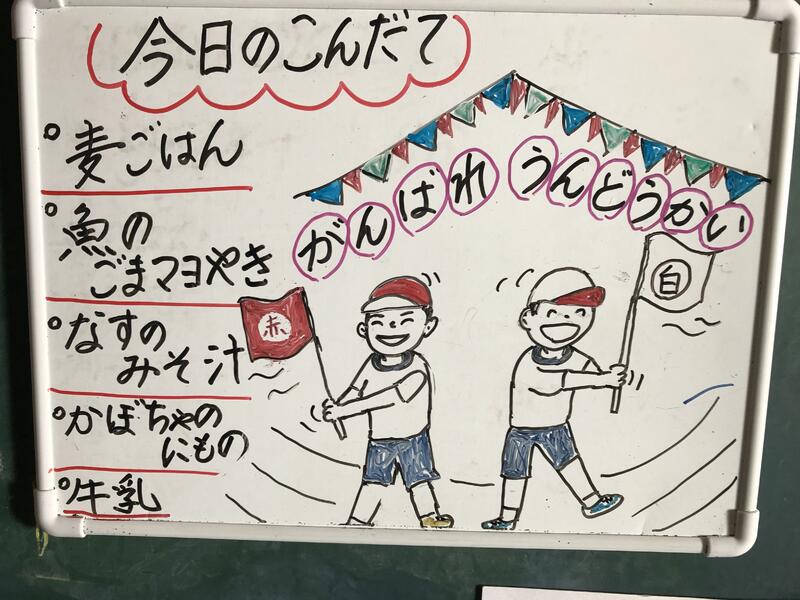 今日のこんだて
がんばれ うんどうかい
○麦ごはん
○魚の
ごまマヨやき
○なすの
みそ汁
○かぼちゃの
にもの
○牛乳
赤
白